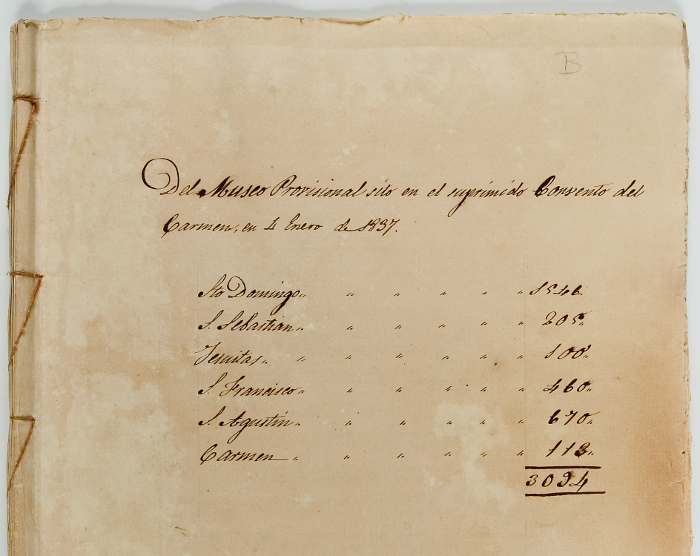 B
Del Museo Provisional sito en el suprimido Convento del
Carmen, en 4 Enero de 1837.
Sto Domingo „ „ „ „ „ „ 1546„
S. Sebastian „ „ „ „ „ „ 205„
Jesuitas „ „ „ „ „ „ „ 100„
S. Francisco „ „ „ „ „ „ 460„
S. Agustin „ „ „ „ „ „ 670„
Carmen „ „ „ „ „ „ 113„
3094